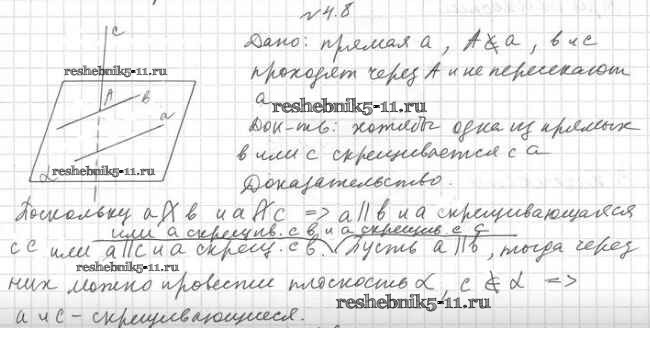 №4.8
c
Дано: прямая a, A∉a, b и c
reshebnik5-11.ru
проходят через A и не пересекают
A b a
a
reshebnik5-11.ru
Док-ть: хотябы одна из прямых
b или c скрещивается с a
α reshebnik5-11.ru
Доказательство.
Поскольку a∦b и a∦c => a||b и a скрещивающаяся
или a скрещив. с b и a скрещив с c
с c или a||c и a скрещ. с b. Пусть a||b, тогда через
reshebnik5-11.ru
них можно провести плоскость α, c ⊄ α =>
reshebnik5-11.ru
a и c - скрещивающиеся.